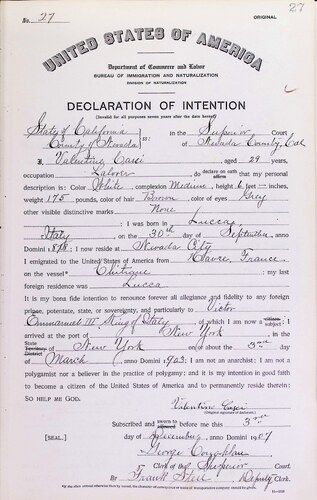 27
No. 27
ORIGINAL
UNITED STATES OF AMERICA
Department of Commerce and Labor
BUREAU OF IMMIGRATION AND NATURALIZATION
DIVISION OF NATURALIZATION
DECLARATION OF INTENTION
(Invalid for all purposes seven years after the date hereof)
State of California
County of Nevada ss: In the Superior Court
of Nevada County, Cal
I, Valentino, aged 29 years,
occupation Laborer, do declare on oath that my personal
description is: Color White, complexion Medium, height 6 feet — inches,
weight 175 pounds, color of hair Brown, color of eyes Grey
other visible distinctive marks None
I was born in Lucca
Italy on the 30th day of September, anno
Domini 1878; I now reside at Nevada City
I emigrated to the United States of America from Havre, France
on the vessel*; my last
foreign residence was Lucca
It is my bona fide intention to renounce forever all allegiance and fidelity to any foreign
prince, potentate, state, or sovereignty, and particularly to Victor
Emmanuel III King of Italy, of which I am now a subject; I
arrived at the port of New York, in the
State of New York on or about the 3rd day
of March, anno Domini 1903; I am not an anarchist; I am not a
polygamist nor a believer in the practice of polygamy; and it is my intention in good faith
to become a citizen of the United States of America and to permanently reside therein:
SO HELP ME GOD.
Valentino
(Original signature of declarant)
Subscribed and sworn to before me this 3rd
[SEAL.] day of December, anno Domini 1907
George
Clerk of the Superior Court.
By Frank, Deputy Clerk.